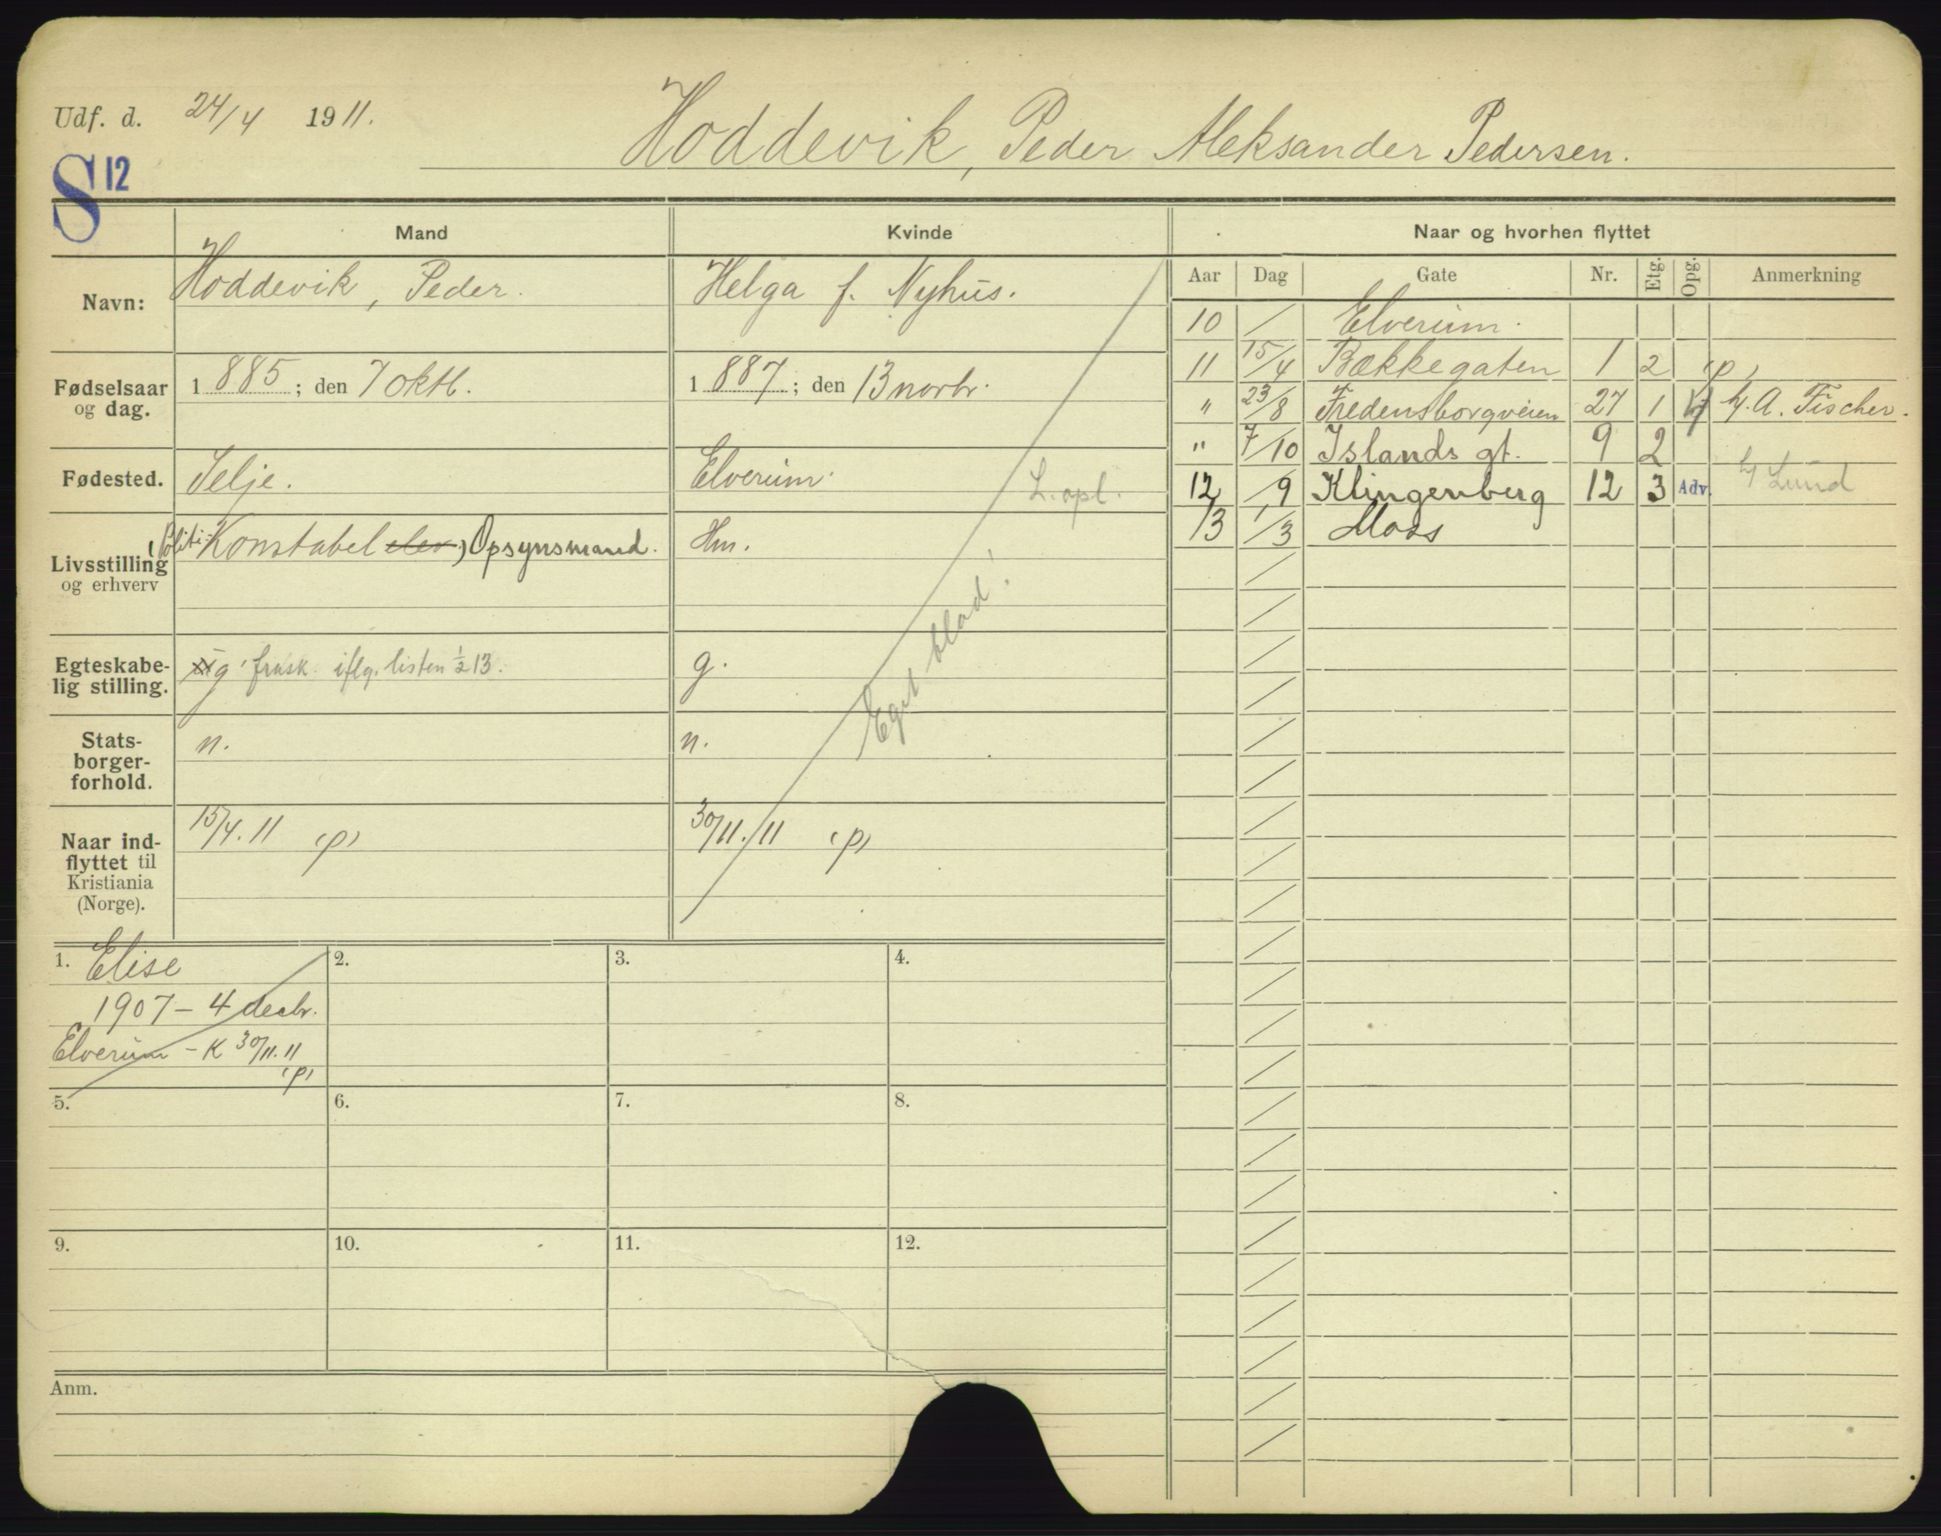 Udf. d. 24/4 1911.
Hoddevik, Peder Aleksander Pedersen.
S 12
Mand
Kvinde
Naar og hvorhen flyttet
Navn:
Hoddevik, Peder.
Helga f. Nyhus.
Fødselsaar og dag.
1885; den 7 oktb.
1887; den 13 novbr.
Fødested.
Selje.
Elverum.
L. opl.
Livsstilling og erhverv
(Politi-Konstabel elev) Opsynsmand.
Hm.
Egteskabelig stilling.
g. frask. iflg. listen 1/2 13.
g.
Eget blad!
Statsborgerforhold.
n.
n.
Naar indflyttet til Kristiania (Norge).
15/4. 11 (p)
30/11. 11 (p)
1. Elise
1907 – 4 decbr.
Elverum – K 30/11. 11
(p)
2.
3.
4.
5.
6.
7.
8.
9.
10.
11.
12.
Anm.
Aar Dag Gate Nr. Etg. Opg. Anmerkning
10 / Elverum.
11 15/4 Bækkegaten 1 2 (p)
" 23/8 Fredensborgveien 27 1 h/ A. Fischer.
" 7/10 Islands gt. 9 2
12 /9 Klingenberg 12 3 Adv. h/ Lund
13 1/3 Moss